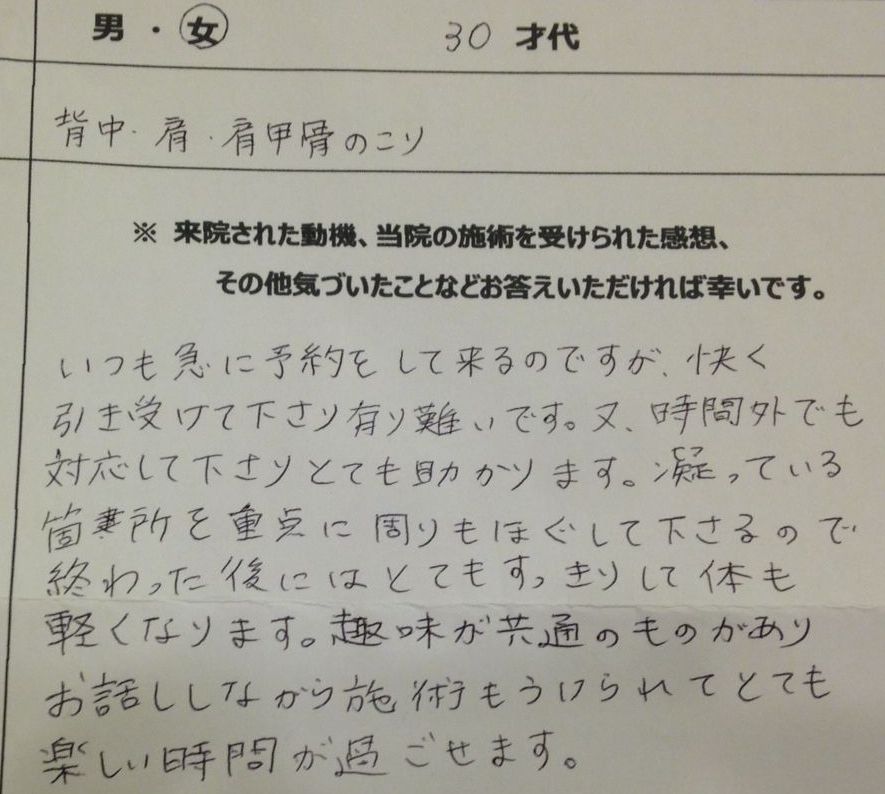 男・女 30 才代
背中・肩・肩甲骨のこり
※ 来院された動機、当院の施術を受けられた感想、
その他気づいたことなどお答えいただければ幸いです。
いつも急に予約をして来るのですが、快く
引き受けて下さり有り難いです。又、時間外でも
対応して下さりとても助かります。凝っている
箇所を重点に周りもほぐして下さるので
終わった後にはとてもすっきりして体も
軽くなります。趣味が共通のものがあり
お話ししながら施術もうけられてとても
楽しい時間が過ごせます。